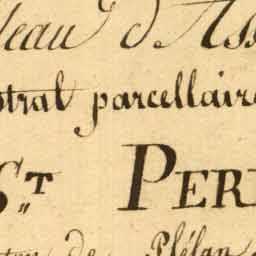 leau d'Ass
stral parcellaire
St. PER
ton de Plélan